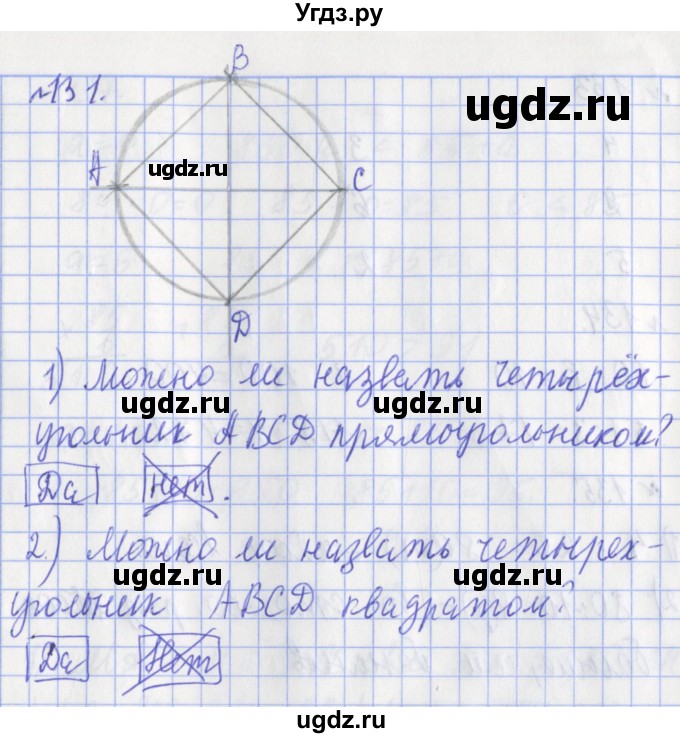 Угдз.ру
B
№131.
ugdz.ru
ugdz.ru
A
C
D
1) Можно ли назвать четырёх-
ugdz.ru ugdz.ru
угольник ABCD прямоугольником?
Да Нет.
2.) Можно ли назвать четырех-
ugdz.ru ugdz.ru
угольник ABCD квадратом?
Да Нет
ugdz.ru